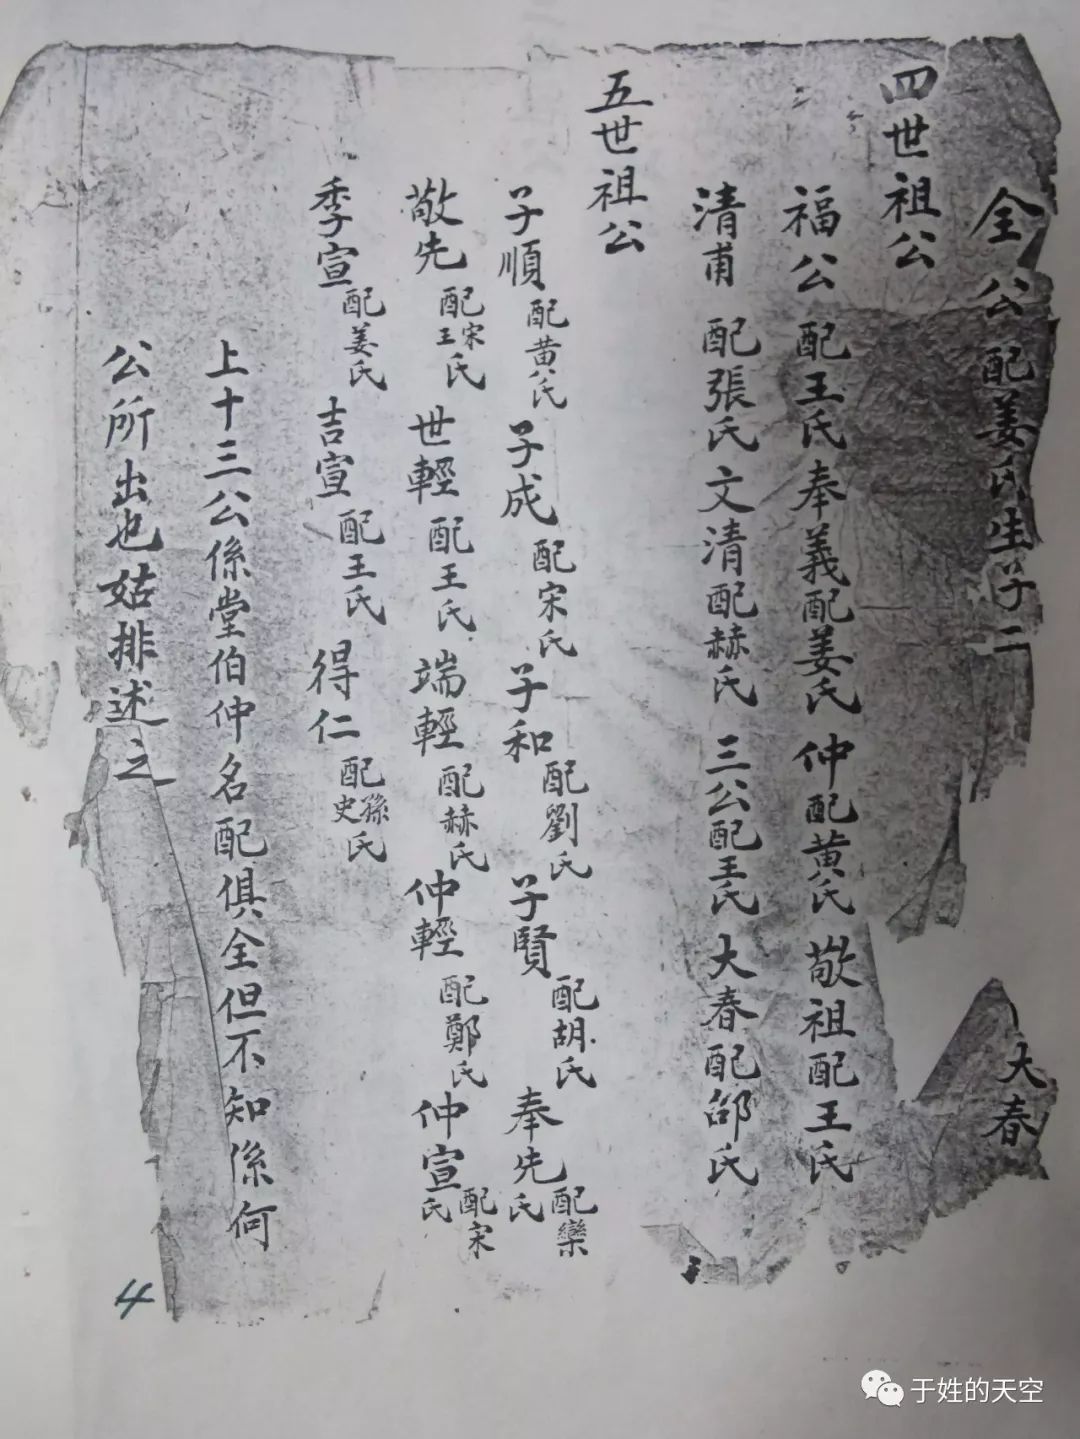 全公配姜氏生子二 大春
四世祖公
福公配王氏奉義配姜氏仲配黄氏敬祖配王氏
清甫配張氏文清配赫氏三公配王氏大春配邵氏
五世祖公
子順配黄氏子成配宋氏子和配劉氏子賢配胡氏奉先配欒氏
敬先配宋王氏世輕配王氏端輕配赫氏仲輕配鄭氏仲宣配宋氏
季宣配姜氏吉宣配王氏得仁配孫史氏
上十三公係堂伯仲名配俱全但不知係何
公所出也姑排述之
4
于姓的天空